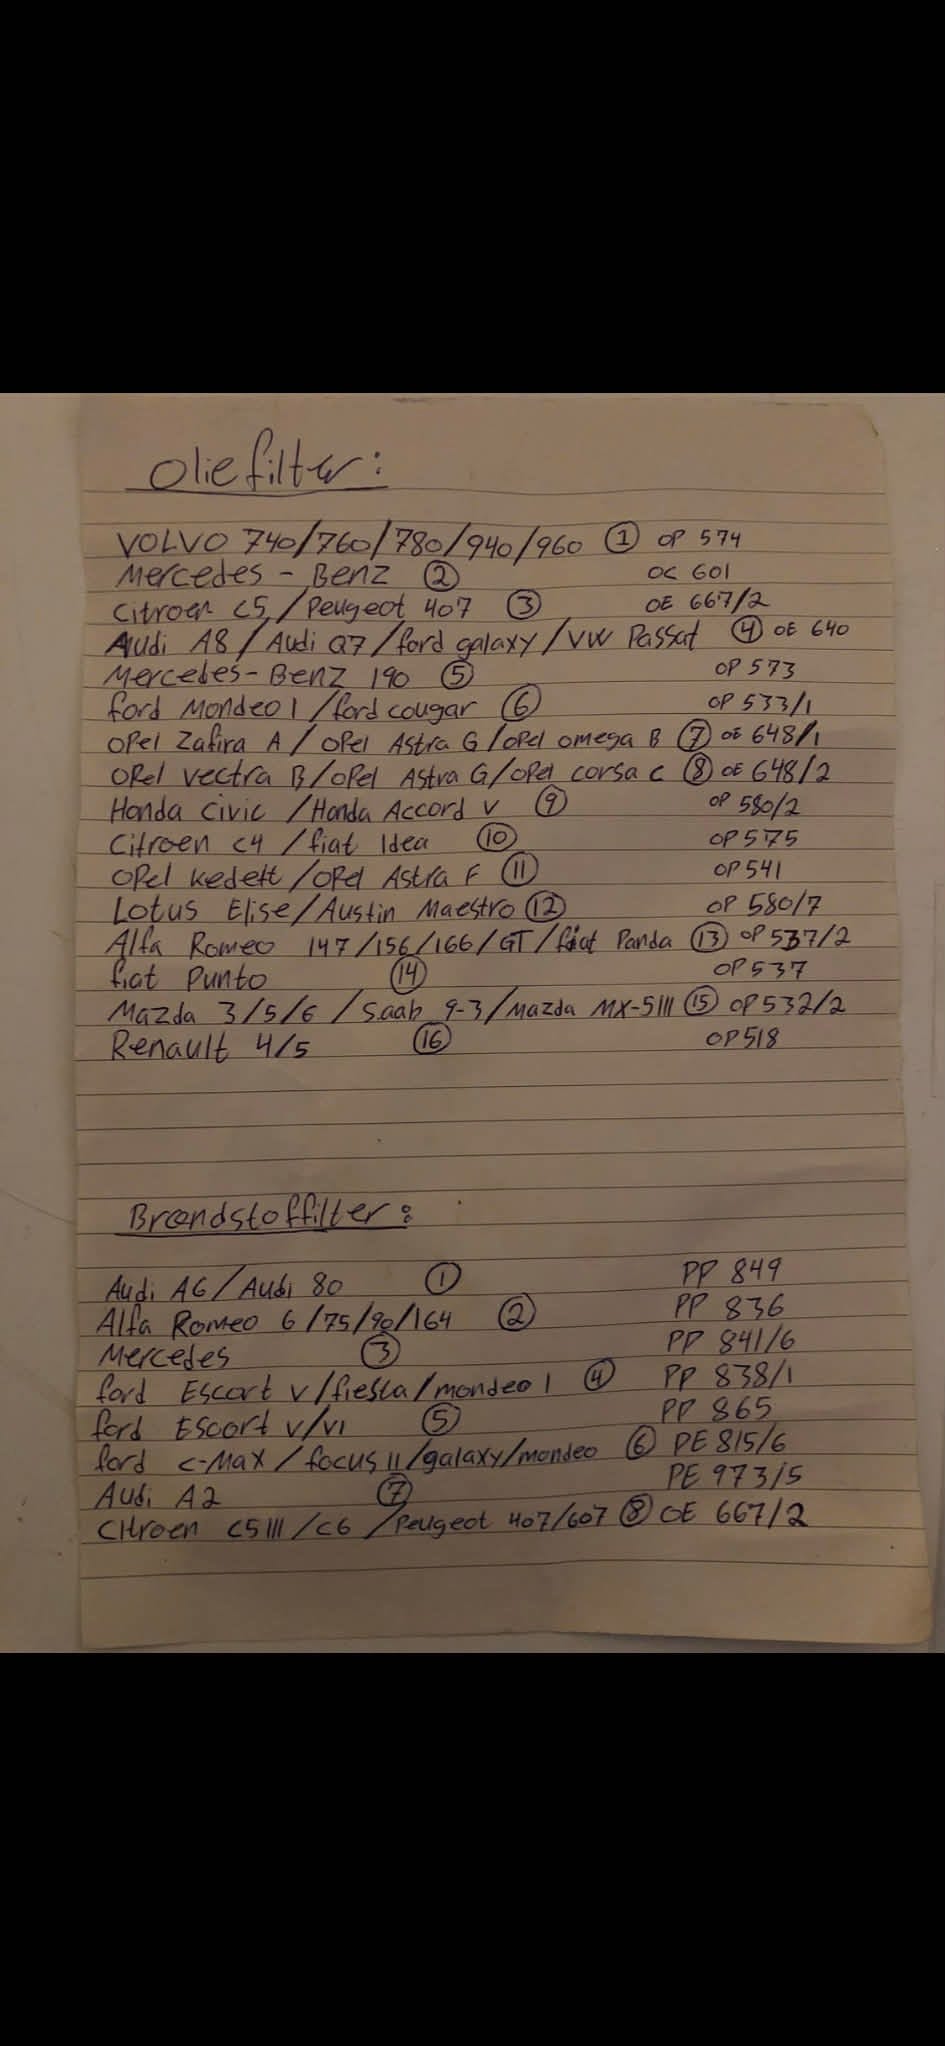 Oliefilter:
VOLVO 740/760/780/940/960 ① OP 574
Mercedes - Benz ② OC 601
Citroen C5/Peugeot 407 ③ OE 667/2
Audi A8/Audi Q7/ford galaxy/VW Passat ④ OE 640
Mercedes-Benz 190 ⑤ OP 573
ford Mondeo I/ford cougar ⑥ OP 533/1
Opel Zafira A/Opel Astra G/Opel omega B ⑦ OE 648/1
Opel vectra B/Opel Astra G/Opel corsa c ⑧ OE 648/2
Honda civic/Honda Accord V ⑨ OP 580/2
Citroen C4/fiat Idea ⑩ OP 575
Opel kedett/Opel Astra F ⑪ OP 541
Lotus Elise/Austin Maestro ⑫ OP 580/7
Alfa Romeo 147/156/166/GT/fiat Panda ⑬ OP 537/2
fiat Punto ⑭ OP 537
Mazda 3/5/6/Saab 9-3/Mazda MX-5III ⑮ OP 532/2
Renault 4/5 ⑯ OP 518
Brændstoffilter:
Audi A6/Audi 80 ① PP 849
Alfa Romeo 6/75/90/164 ② PP 836
Mercedes ③ PP 841/6
ford Escort V/fiesta/mondeo I ④ PP 838/1
ford Escort V/VI ⑤ PP 865
ford C-Max/focus II/galaxy/mondeo ⑥ PE 815/6
Audi A2 ⑦ PE 973/5
Citroen C5III/C6/Peugeot 407/607 ⑧ OE 667/2